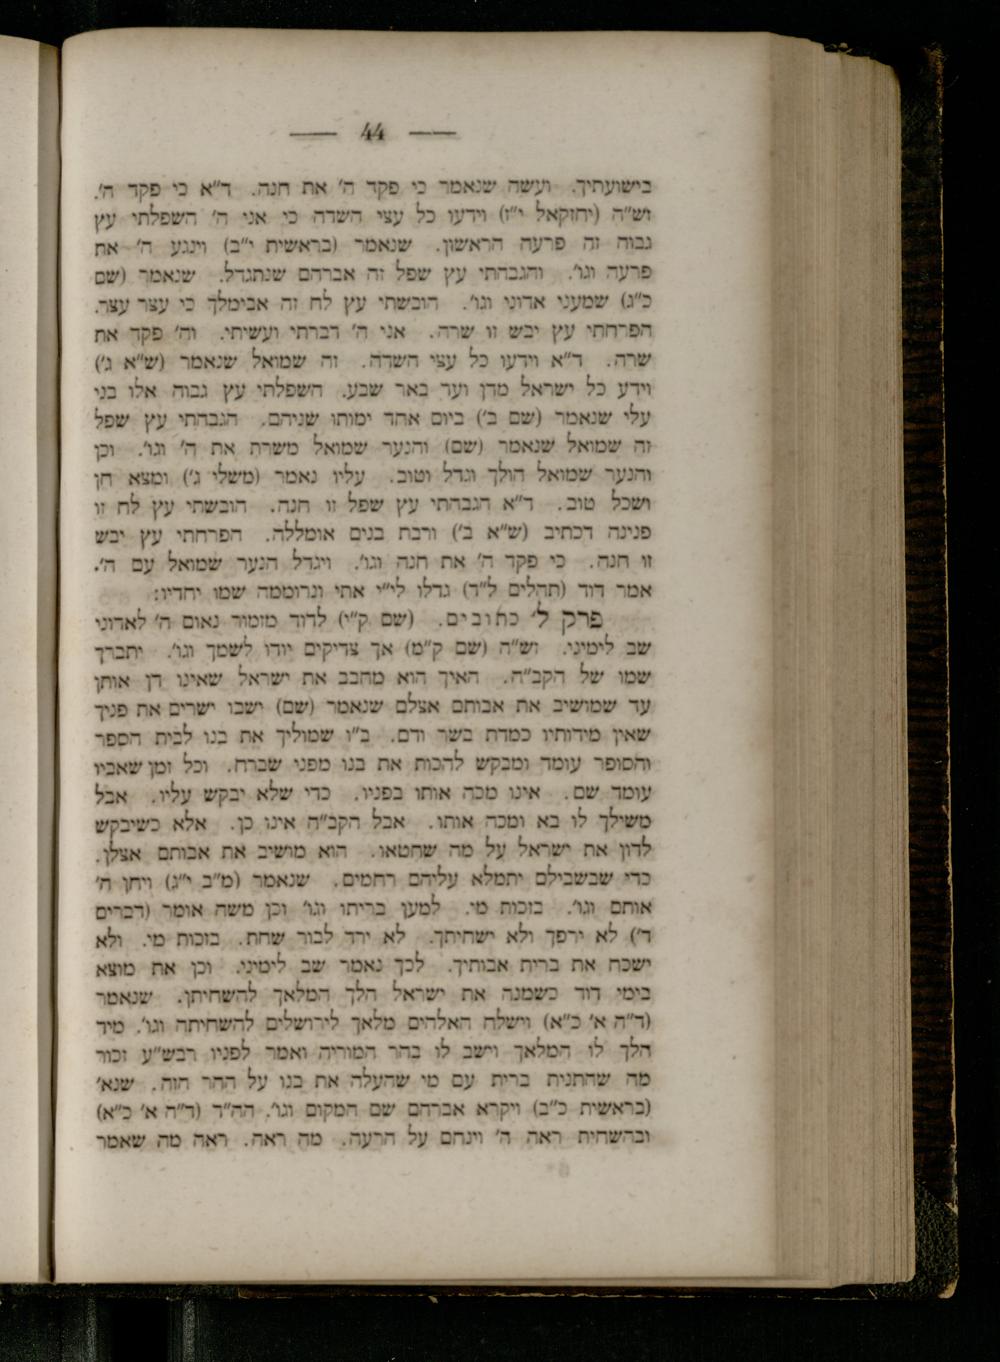 — 44 —
בישועתיך. ועשה שנאמר כי פקד ה׳ את חנה. ד״א כי פקד ה׳.
וש״ה (יחזקאל י״ז) וידעו כל עצי השדה כי אני ה׳ השפלתי עץ
גבוה זה פרעה הראשון. שנאמר (בראשית י״ב) וינגע ה׳ את
פרעה וגו׳. והגבהתי עץ שפל זה אברהם שנתגדל. שנאמר (שם
כ״ג) שמעני אדוני וגו׳. הובשתי עץ לח זה אבימלך כי עצר עצר.
הפרחתי עץ יבש זו שרה. אני ה׳ דברתי ועשיתי. וה׳ פקד את
שרה. ד״א וידעו כל עצי השדה. זה שמואל שנאמר (ש״א ג׳)
וידע כל ישראל מדן ועד באר שבע. השפלתי עץ גבוה אלו בני
עלי שנאמר (שם ב׳) ביום אחד ימותו שניהם. הגבהתי עץ שפל
זה שמואל שנאמר (שם) והנער שמואל משרת את ה׳ וגו׳. וכן
והנער שמואל הולך וגדל וטוב. עליו נאמר (משלי ג׳) ומצא חן
ושכל טוב. ד״א הגבהתי עץ שפל זו חנה. הובשתי עץ לח זו
פנינה דכתיב (ש״א ב׳) ורבת בנים אומללה. הפרחתי עץ יבש
זו חנה. כי פקד ה׳ את חנה וגו׳. ויגדל הנער שמואל עם ה׳.
אמר דוד (תהלים ל״ד) גדלו לי״י אתי ונרוממה שמו יחדיו:
פרק ל׳ כתובים. (שם ק״י) לדוד מזמור נאום ה׳ לאדוני
שב לימיני. וש״ה (שם ק״מ) אך צדיקים יודו לשמך וגו׳. יתברך
שמו של הקב״ה. האיך הוא מחבב את ישראל שאינו דן אותן
עד שמושיב את אבותם אצלם שנאמר (שם) ישבו ישרים את פניך
שאין מידותיו כמדת בשר ודם. ב״ו שמוליך את בנו לבית הספר
והסופר עומד ומבקש להכות את בנו מפני שברח. וכל זמן שאביו
עומד שם. אינו מכה אותו בפניו. כדי שלא יבקש עליו. אבל
משילך לו בא ומכה אותו. אבל הקב״ה אינו כן. אלא כשיבקש
לדון את ישראל על מה שחטאו. הוא מושיב את אבותם אצלן.
כדי שבשבילם יתמלא עליהם רחמים. שנאמר (מ״ב י״ג) ויחן ה׳
אותם וגו׳. בזכות מי. למען בריתו וגו׳ וכן משה אומר (דברים
ד׳) לא ירפך ולא ישחיתך. לא ירד לבור שחת. בזכות מי. ולא
ישכח את ברית אבותיך. לכך נאמר שב לימיני. וכן את מוצא
בימי דוד כשמנה את ישראל הלך המלאך להשחיתן. שנאמר
(ד״ה א׳ כ״א) וישלח האלהים מלאך לירושלים להשחיתה וגו׳. מיד
הלך לו המלאך וישב לו בהר המוריה ואמר לפניו רבש״ע זכור
מה שהתנית ברית עם מי שהעלה את בנו על ההר הזה. שנא׳
(בראשית כ״ב) ויקרא אברהם שם המקום וגו׳. הה״ד (ד״ה א׳ כ״א)
ובהשחית ראה ה׳ וינחם על הרעה. מה ראה. ראה מה שאמר